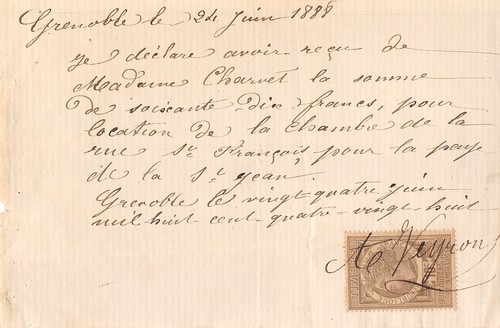 Grenoble le 24 Juin 1888
je déclare avoir reçu de
Madame Charvet la somme
de soixante dix francs, pour
location de la chambre de la
rue St. François, pour la paye
de la St. jean,
Grenoble le vingt quatre juin
mil huit cent quatre-vingt huit
A Veyron